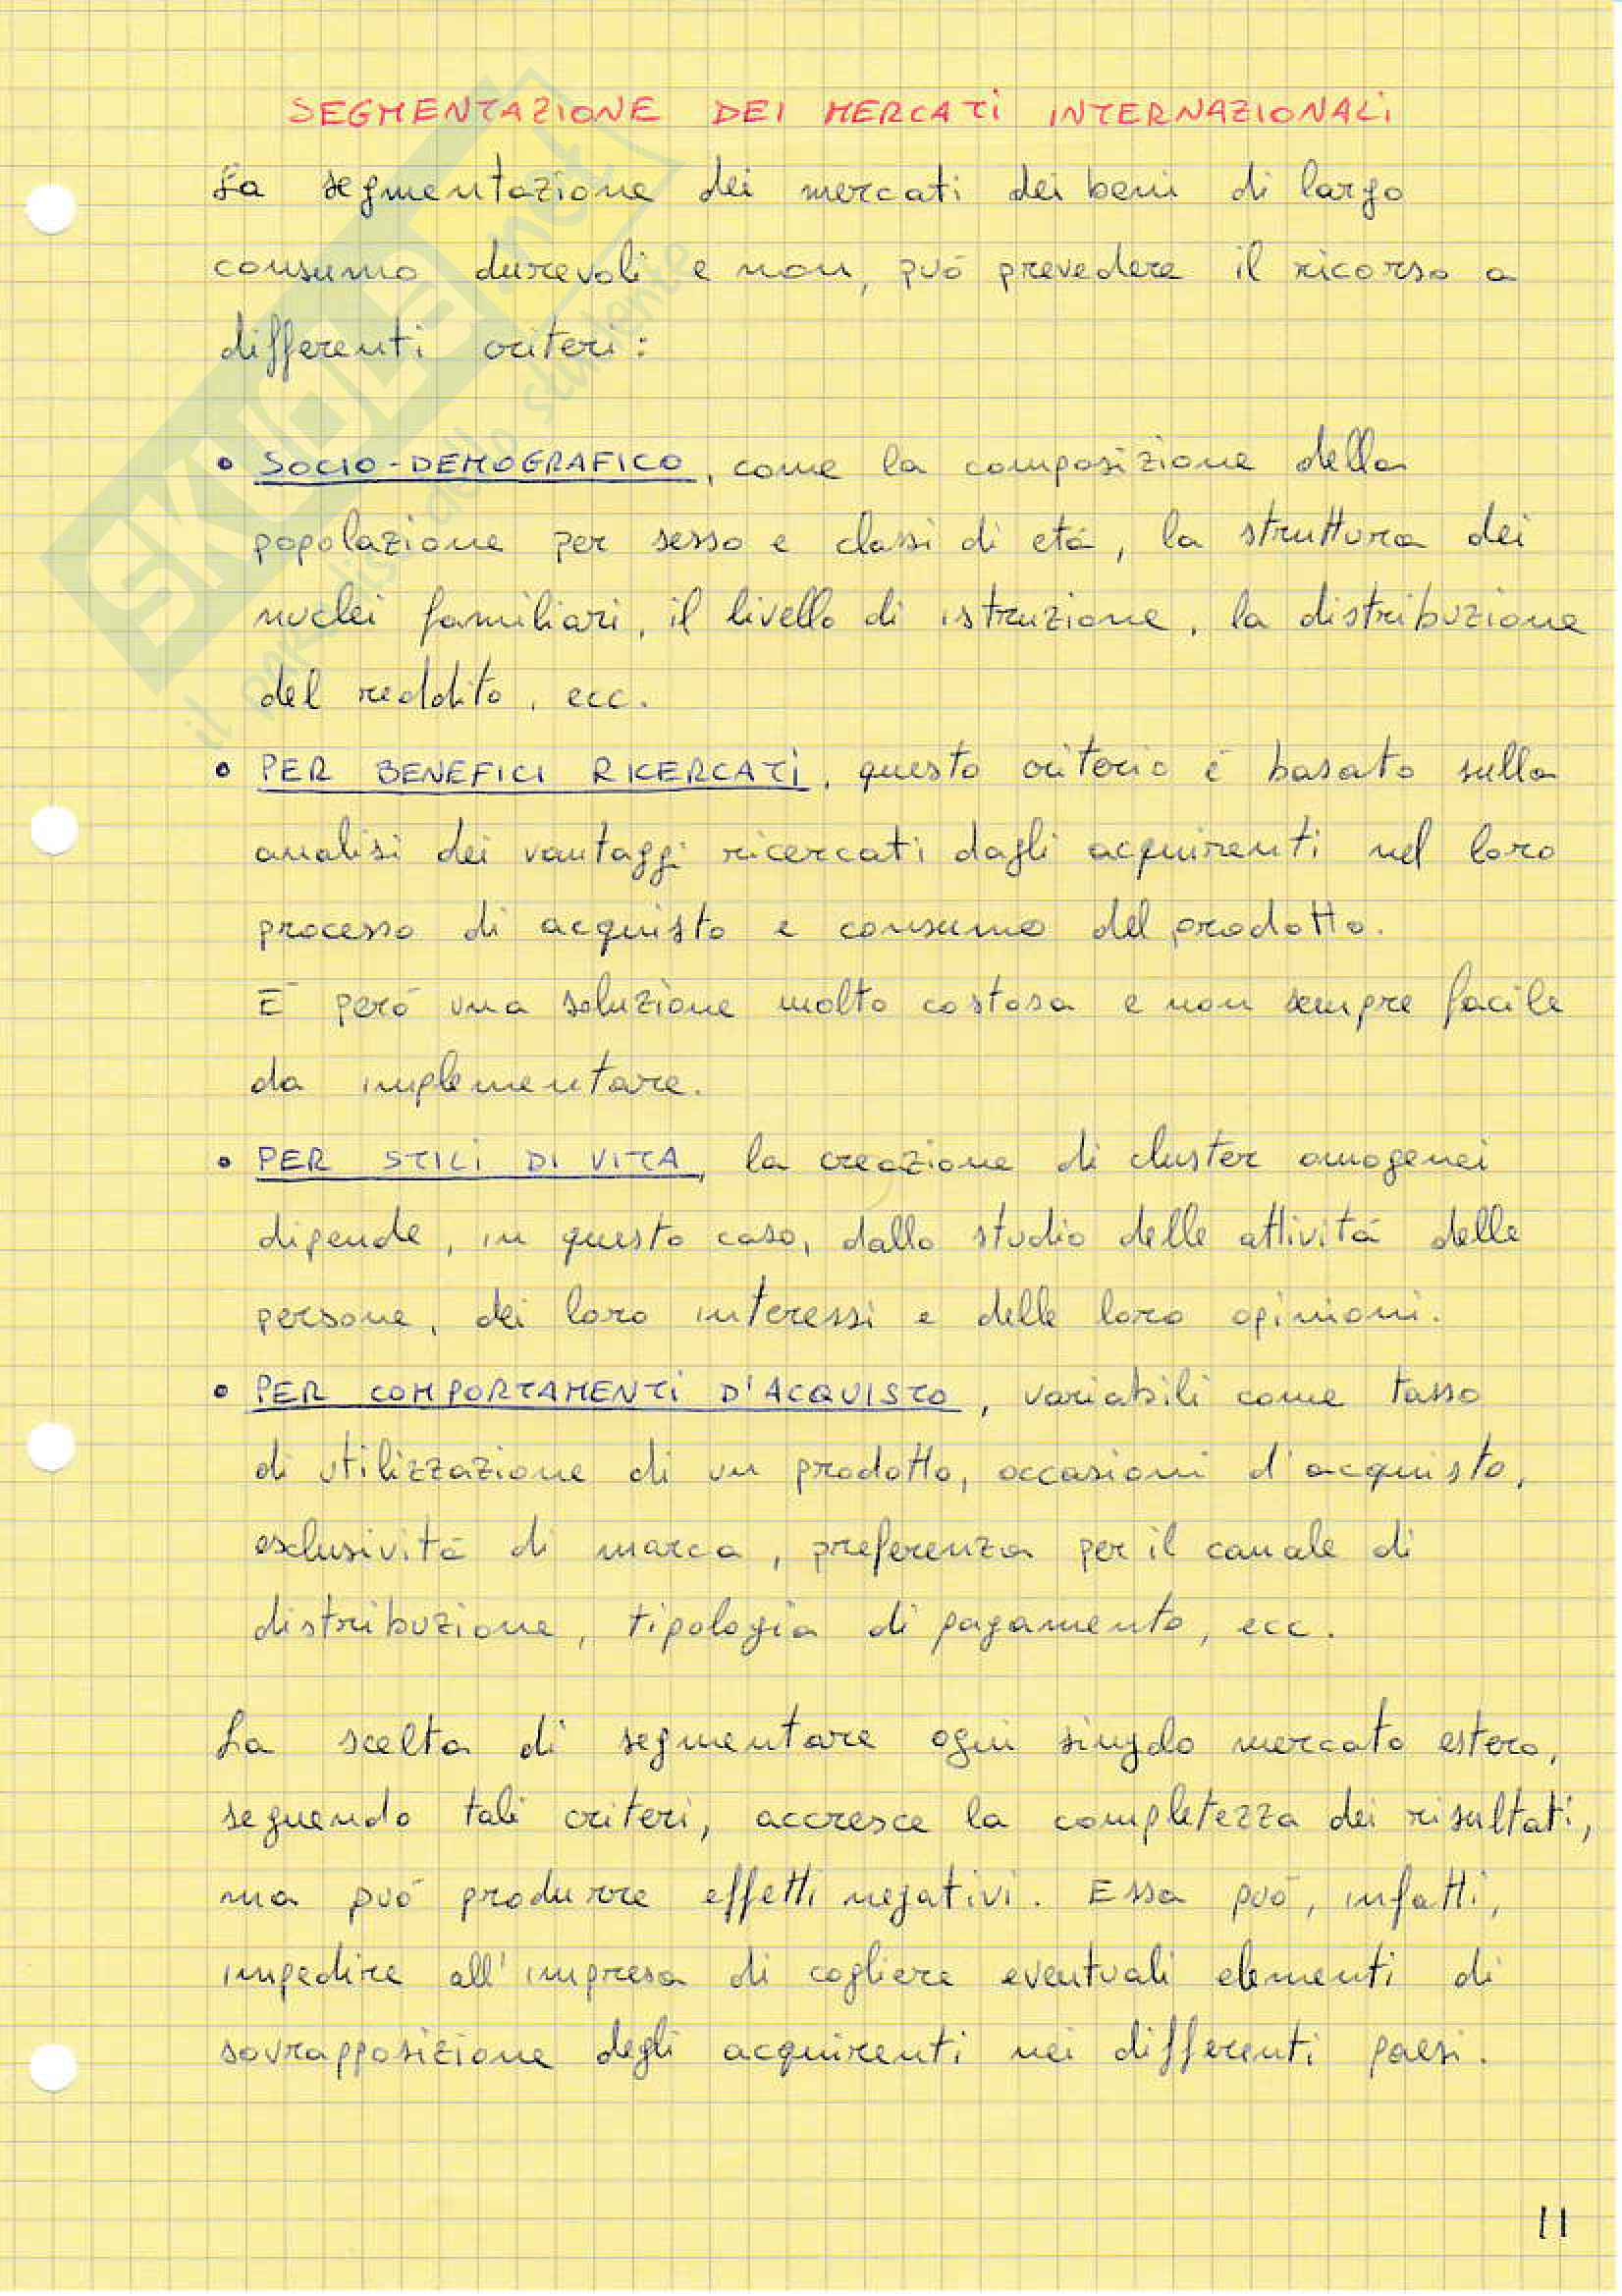 SEGMENTAZIONE DEI MERCATI INTERNAZIONALI
La segmentazione dei mercati dei beni di largo
consumo durevoli e non, può prevedere il ricorso a
differenti criteri:
• SOCIO-DEMOGRAFICO, come la composizione della
popolazione per sesso e classi di età, la struttura dei
nuclei familiari, il livello di istruzione, la distribuzione
del reddito, ecc.
• PER BENEFICI RICERCATI, questo criterio è basato sulla
analisi dei vantaggi ricercati dagli acquirenti nel loro
processo di acquisto e consumo del prodotto.
È però una soluzione molto costosa e non sempre facile
da implementare.
• PER STILI DI VITA, la creazione di cluster omogenei
dipende, in questo caso, dallo studio delle attività delle
persone, dei loro interessi e delle loro opinioni.
• PER COMPORTAMENTI D'ACQUISTO, variabili come tasso
di utilizzazione di un prodotto, occasioni d'acquisto,
esclusività di marca, preferenza per il canale di
distribuzione, tipologia di pagamento, ecc.
La scelta di segmentare ogni singolo mercato estero,
seguendo tali criteri, accresce la completezza dei risultati,
ma può produrre effetti negativi. Essa può, infatti,
impedire all'impresa di cogliere eventuali elementi di
sovrapposizione degli acquirenti nei differenti paesi.
11
SKUOLA.net
il paradiso dello studente